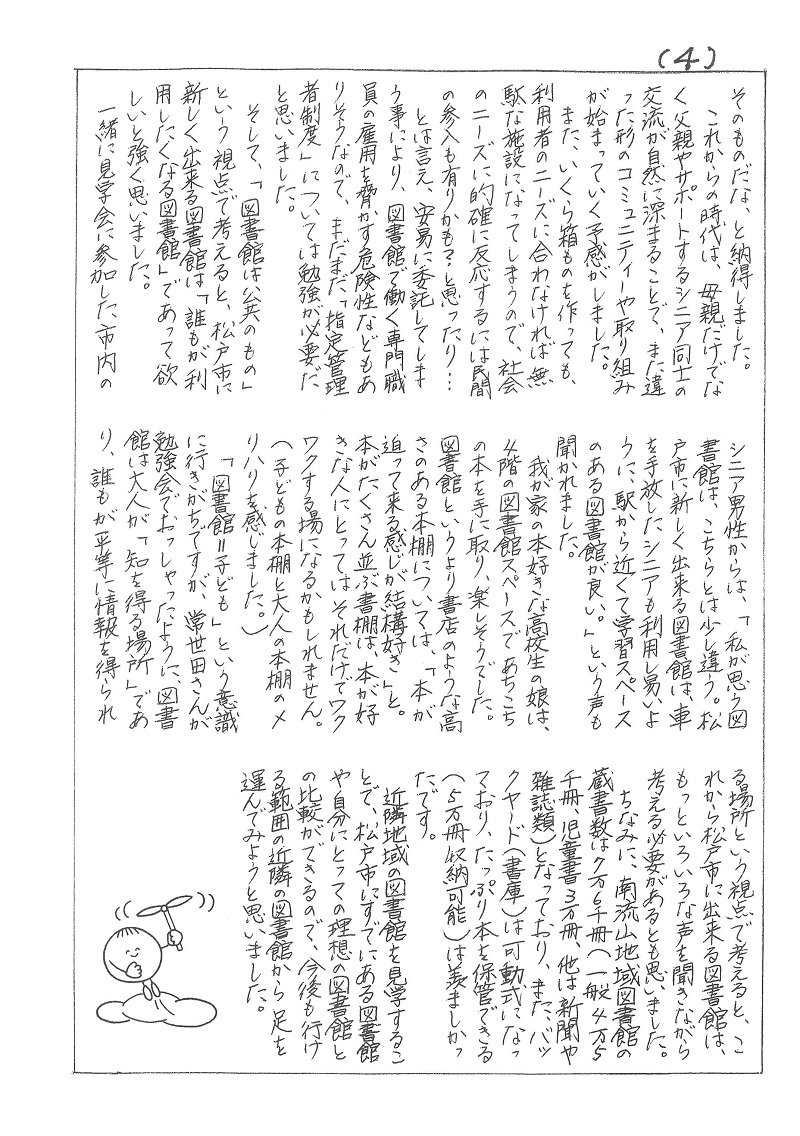 (4)
そのものだな、と納得しました。
これからの時代は、母親だけでな
く父親やサポートするシニア同士の
交流が自然に深まることで、また違
った形のコミュニティーや取り組み
が始まっていく予感がしました。
また、いくら箱ものを作っても、
利用者のニーズに合わなければ無
駄な施設になってしまうので、社会
のニーズに的確に反応するには民間
の参入も有りかも？と思ったり…
とは言え、安易に委託してしま
う事により、図書館で働く専門職
員の雇用を脅かす危険性などもあ
りそうなので、まだまだ「指定管理
者制度」については勉強が必要だ
と思いました。
そして、「図書館は公共のもの」
という視点で考えると、松戸市に
新しく出来る図書館は「誰もが利
用したくなる図書館」であって欲
しいと強く思いました。
一緒に見学会に参加した市内の
シニア男性からは、「私が思う図
書館は、こちらとは少し違う。松
戸市に新しく出来る図書館は、車
を手放したシニアも利用し易いよ
うに、駅から近くて学習スペース
のある図書館が良い。」という声も
聞かれました。
我が家の本好きな高校生の娘は、
4階の図書館スペースであちこち
の本を手に取り、楽しそうでした。
図書館というより書店のような高
さのある本棚については、「本が
迫って来る感じが結構好き」と。
本がたくさん並ぶ書棚は、本が好
きな人にとってはそれだけでワク
ワクする場になるかもしれません。
（子どもの本棚と大人の本棚のメ
リハリを感じました。）
「図書館＝子ども」という意識
に行きがちですが、常世田さんが
勉強会でおっしゃったように、図書
館は大人が「知を得る場所」であ
り、誰もが平等に情報を得られ
る場所という視点で考えると、こ
れから松戸市に出来る図書館は、
もっといろいろな声を聞きながら
考える必要があるとも思いました。
ちなみに、南流山地域図書館の
蔵書数は7万6千冊（一般4万5
千冊、児童書3万冊、他は新聞や
雑誌類）となっており、また、バッ
クヤード（書庫）は可動式になっ
ており、たっぷり本を保管できる
（5万冊収納可能）は羨ましかっ
たです。
近隣地域の図書館を見学するこ
とで、松戸市にすでにある図書館
や自分にとっての理想の図書館と
の比較ができるので、今後も行け
る範囲の近隣の図書館から足を
運んでみようと思いました。